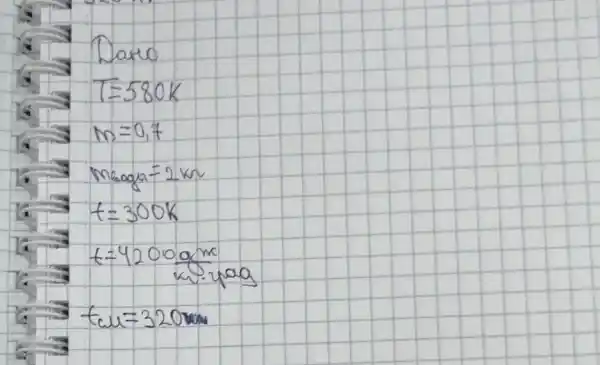 Дано
T=580K
m=0,7
mводы=2кг
t=300K
t=4200 дж
кг·град
tсм=320